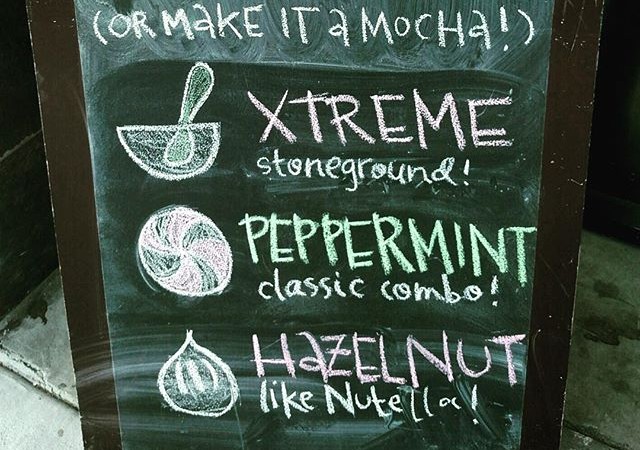 (OR MAKE IT a MOCHa!)
XTREME
stoneground!
PEPPERMINT
classic combo!
HaZELNUT
like Nutella!